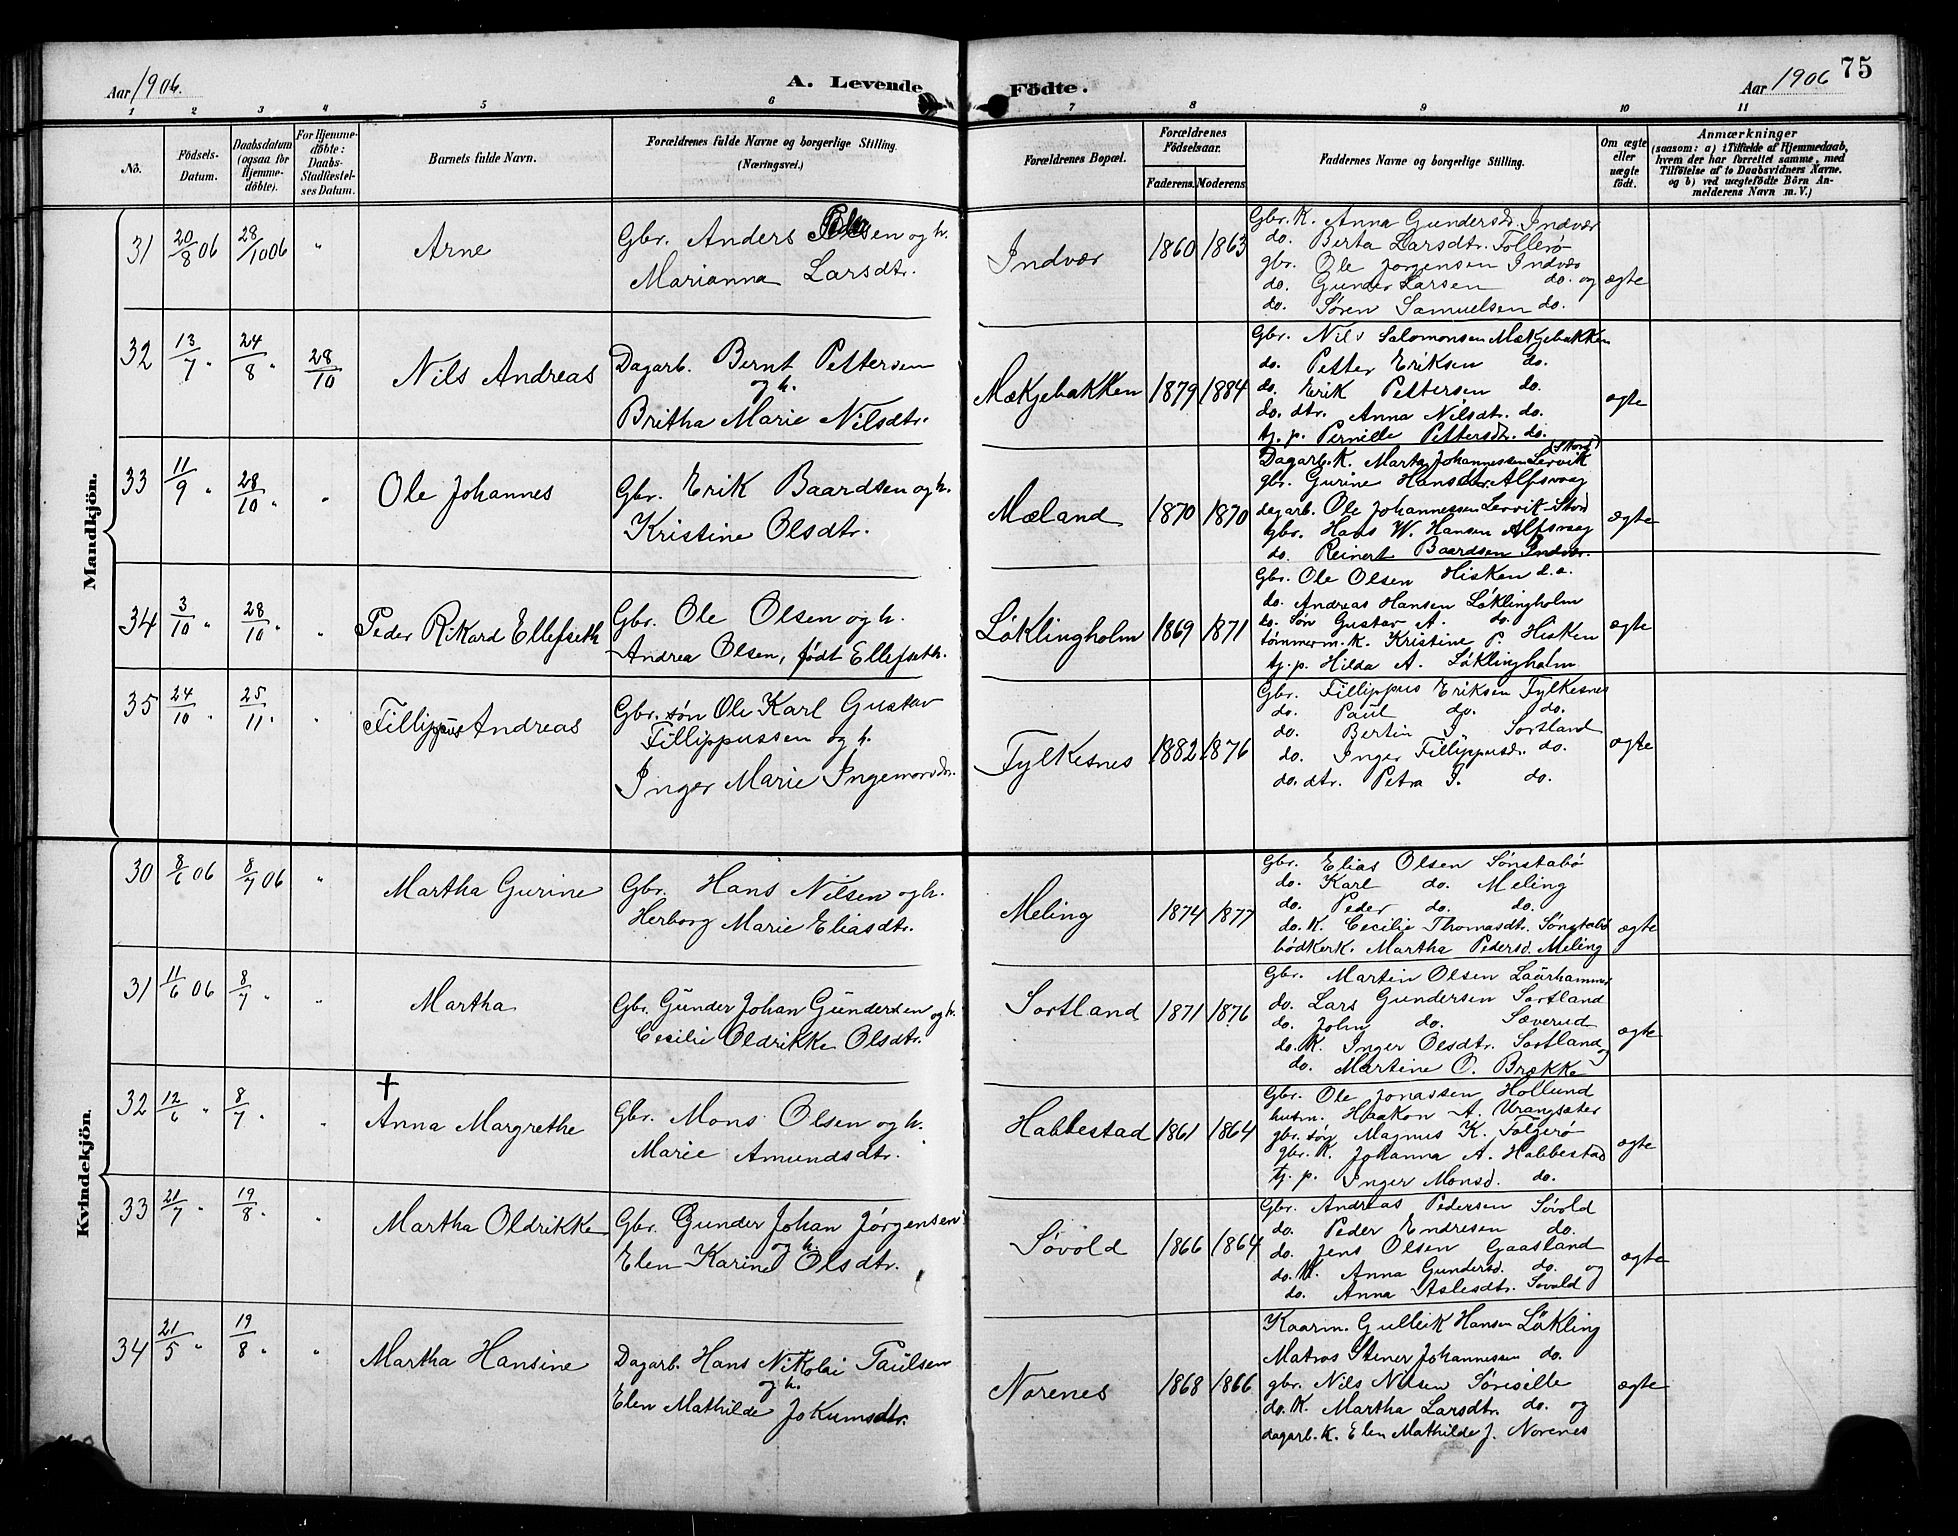 Aar 1906.
A. Levende Födte.
Aar 1906
75
1 2 3 4 5 6 7 8 9 10 11
No.
Födsels-Datum.
Daabsdatum (ogsaa for Hjemme-döbte).
For Hjemme-döbte: Daabs-Stadfæstel-ses Datum.
Barnets fulde Navn.
Forældrenes fulde Navne og borgerlige Stilling. (Næringsvei.)
Forældrenes Bopæl.
Forældrenes Födselsaar.
Faderens. Moderens.
Faddernes Navne og borgerlige Stilling.
Om ægte eller uægte födt.
Anmærkninger
(saasom: a) i Tilfælde af Hjemmedaab, hvem der har forrettet samme, med Tilföielse af to Daabsvidners Navne. og b) ved uægtefödte Börn An-melderens Navn m. V.)
Mandkjön.
31 20/8 06 28/10 06 " Arne
Gbr. Anders Olsen og h.
Marianna Larsdtr.
Indvær 1860 1863
Gbr. K. Anna Gundersdr. Indvær
do. Berta Larsdtr. Follerø
gbr. Ole Jørgensen Indvær
do. Gunder Larsen do. og
do. Søren Samuelsen do.
ægte
32 13/7 " 24/8 " 28/10 Nils Andreas
Dagarb. Bernt Pettersen
og h.
Britha Marie Nilsdtr.
Mækjebakken 1879 1884
Gbr. Nils Salomonsen Mækjebakken
do. Petter Eriksen do.
do. Erik Pettersen do.
do. dtr. Anna Nilsdtr. do.
tj. p. Pernille Pettersdr. do.
ægte
33 11/9 " 28/10 " " Ole Johannes
Gbr. Erik Baardsen og h.
Kristine Olsdtr.
Mæland 1870 1870
Dagarb. K. Marta Johannessen Lervik (Stord)
gbr. Gurine Hansdtr. Alfsvaag
dagarb. Ole Johannessen Lervik Stord
gbr. Hans W. Hansen Alfsvaag
do. Reinert Baardsen Indvær.
ægte
34 3/10 " 28/10 " " Peder Rikard Ellefseth
Gbr. Ole Olsen og h.
Andrea Olsen, født Ellefseth.
Løklingholm 1869 1871
Gbr. Ole Olsen Hisken d.e.
do. Andreas Hansen Løklingholm
do. søn Gustav A. do.
tømmerm. K. Kristine P. Hisken
tj. p. Hilda A. Løklingholm
ægte
35 24/10 " 25/11 " " Fillippus Andreas
Gbr. søn Ole Karl Gustav
Fillippussen og h.
Inger Marie Ingemorsdr.
Fylkesnes 1882 1876
Gbr. Fillippus Eriksen Fylkesnes
do. Paul do. do.
do. Bertin I Sortland
do. Inger Fillippusdr. do.
do. dtr. Petra I. do.
ægte
Kvindekjön.
30 8/6 06 8/7 06 " Martha Gurine
Gbr. Hans Nilsen og h.
Herborg Marie Eliasdtr.
Meling 1874 1877
Gbr. Elias Olsen Sønstabø
do. Karl do. Meling
do. Peder do. do.
do. K. Cecilie Thomasdtr. Sønstabø
bødkerk. Martha Pedersd. Meling
ægte
31 11/6 06 8/7 " " Martha
Gbr. Gunder Johan Gundersen og h.
Cecilie Oldrikke Olsdtr.
Sortland 1871 1876
Gbr. Martin Olsen Laurhammer
do. Lars Gundersen Sortland
do. John do. Sæverud
do. K. Inger Olsdtr. Sortland og
do. Martine O. Brække
ægte
†
32 12/6 " 8/7 " " Anna Margrethe
Gbr. Mons Olsen og h.
Marie Amundsdtr.
Habbestad 1861 1864
Gbr. Ole Jonassen Hollund
husm. Haakon A. Urangsæter
gbr. søn Magnus K. Folgerø
gbr. K. Johanna A. Habbestad
tj. p. Inger Monsd. do.
ægte
33 21/7 " 19/8 " " Martha Oldrikke
Gbr. Gunder Johan Jørgensen
og h.
Elen Karine Olsdtr.
Søvold 1866 1864
Gbr. Andreas Pedersen Søvold
do. Peder Endresen do.
do. Jens Olsen Gaasland
do. K. Anna Gundersd. do. og
do. Anna Aslesdtr. Søvold
ægte
34 21/5 " 19/8 " " Martha Hansine
Dagarb. Hans Nikolai Paulsen
og h.
Elen Mathilde Jokumsdtr.
Norenes 1868 1866
Kaarm. Gulleik Hansen Løkling
Matros Stener Johannessen do.
gbr. Nils Nilsen Sørisille
do. K. Martha Larsdtr. do. og
dagarb. K. Elen Mathilde J. Norenes
ægte